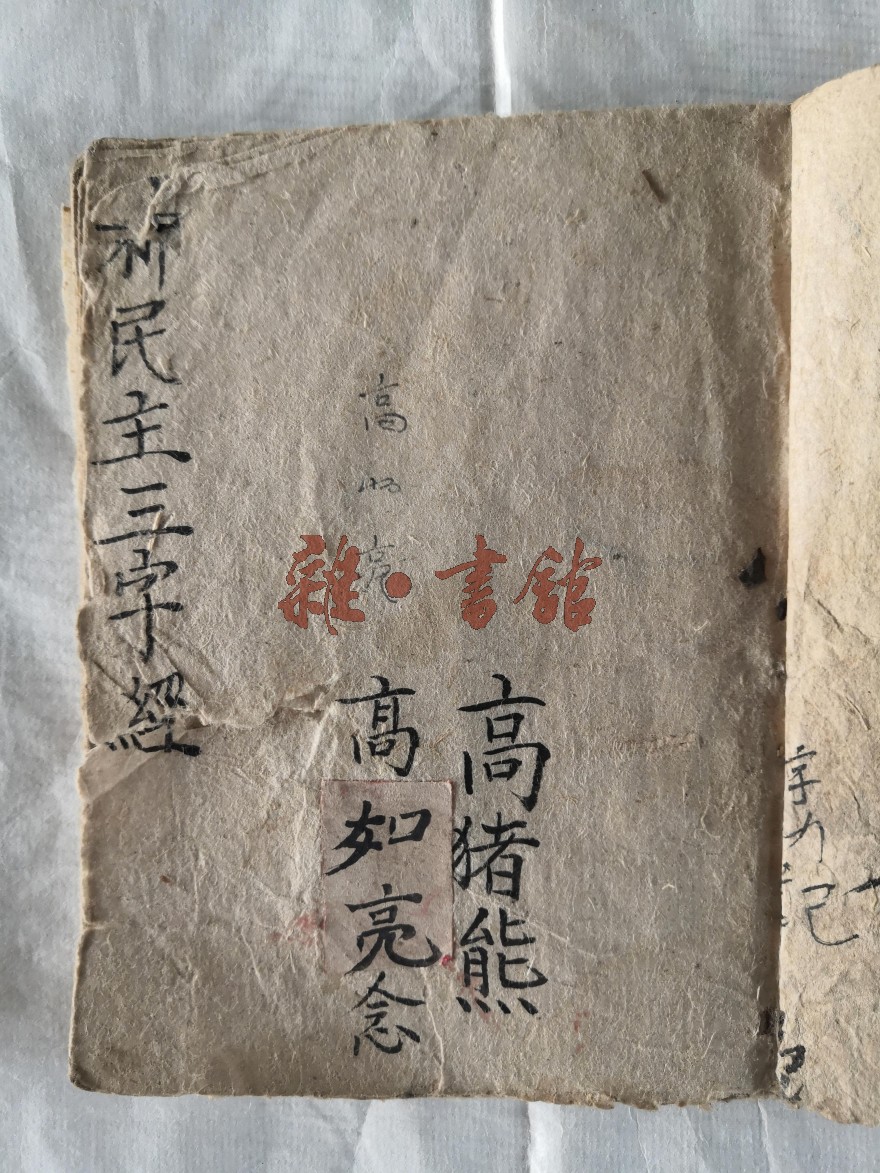 高猪熊
高如亮念
高如亮
新民主三字經
雜·書館